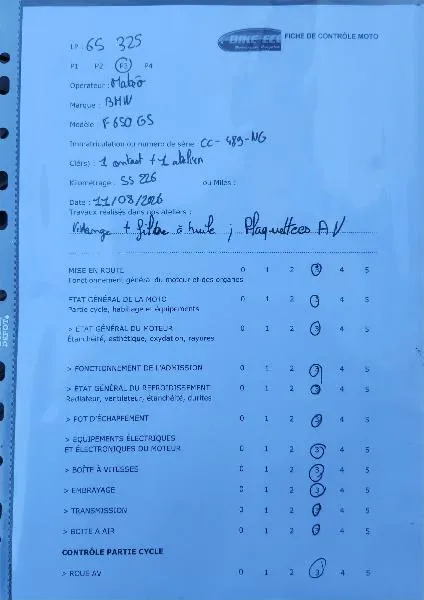 BIKE ECO
FICHE DE CONTRÔLE MOTO
LP : 6S 325
P1 P2 P3 P4
Opérateur : Matéo
Marque : BMW
Modèle : F 650 GS
Immatriculation ou numéro de série : CC-489-NG
Clé(s) : 1 contact + 1 atelier
Kilométrage : 55 226 ou Miles :
Date : 11/08/2026
Travaux réalisés dans nos ateliers :
Vidange + filtre à huile ; Plaquettes AV
MISE EN ROUTE 0 1 2 3 4 5
Fonctionnement général du moteur et des organes
ETAT GÉNÉRAL DE LA MOTO 0 1 2 3 4 5
Partie cycle, habillage et équipements
> ETAT GÉNÉRAL DU MOTEUR 0 1 2 3 4 5
Étanchéité, esthétique, oxydation, rayures
> FONCTIONNEMENT DE L'ADMISSION 0 1 2 3 4 5
> ETAT GÉNÉRAL DU REFROIDISSEMENT 0 1 2 3 4 5
Radiateur, ventilateur, étanchéité, durites
> POT D'ÉCHAPPEMENT 0 1 2 3 4 5
> EQUIPEMENTS ÉLECTRIQUES
ET ÉLECTRONIQUES DU MOTEUR 0 1 2 3 4 5
> BOÎTE À VITESSES 0 1 2 3 4 5
> EMBRAYAGE 0 1 2 3 4 5
> TRANSMISSION 0 1 2 3 4 5
> BOITE A AIR 0 1 2 3 4 5
CONTRÔLE PARTIE CYCLE
> ROUE AV 0 1 2 3 4 5